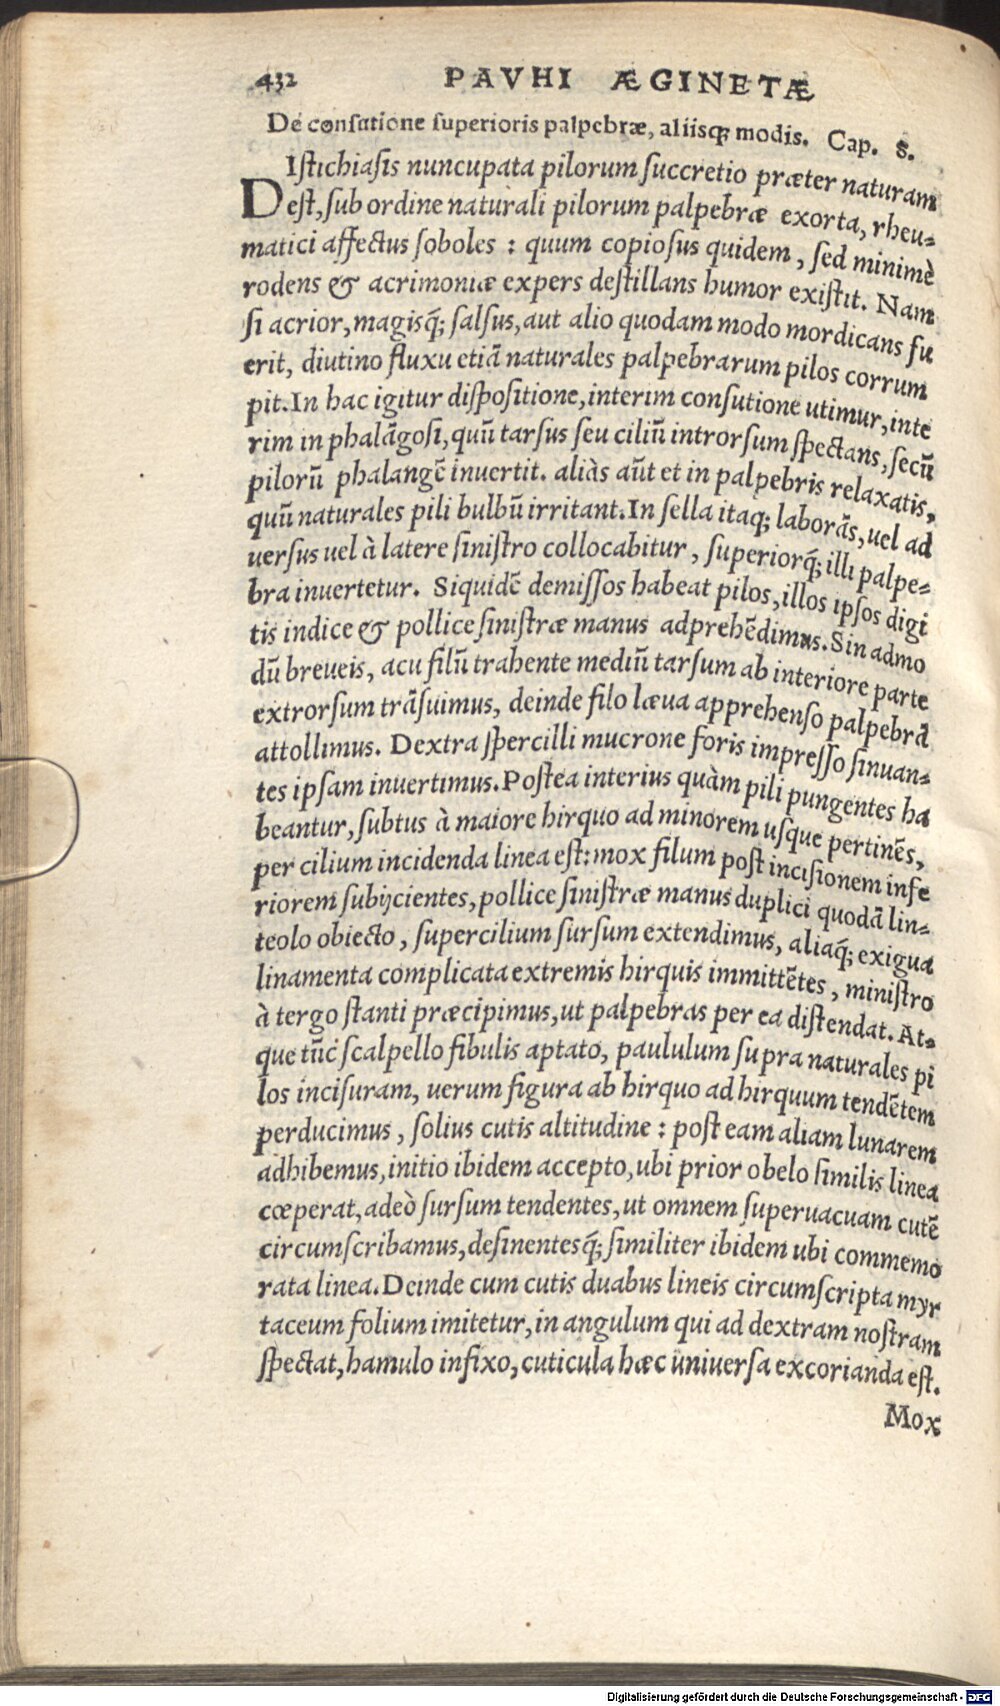 432 PAVHI ÆGINETÆ
De consutione superioris palpebræ, aliisq; modis. Cap. 8.
DIstichiasis nuncupata pilorum succretio præter naturam
est, sub ordine naturali pilorum palpebræ exorta, rheu-
matici affectus soboles : quum copiosus quidem, sed minimè
rodens & acrimoniæ expers destillans humor existit. Nam
si acrior, magisq́; salsus, aut alio quodam modo mordicans fu
erit, diutino fluxu etiā naturales palpebrarum pilos corrum
pit. In hac igitur dispositione, interim consutione utimur, inte
rim in phalāgosi, quū tarsus seu ciliū introrsum spectans, secū
pilorū phalangē inuertit. aliàs aūt et in palpebris relaxatis,
quū naturales pili bulbū irritant. In sella itaq; laborās, uel ad
uersus uel à latere sinistro collocabitur, superiorq́; illi palpe-
bra inuertetur. Siquidē demissos habeat pilos, illos ipsos digi
tis indice & pollice sinistræ manus adprehēdimus. Sin admo
dū breueis, acu filū trahente mediū tarsum ab interiore parte
extrorsum trāsuimus, deinde filo læua apprehenso palpebrā
attollimus. Dextra specilli mucrone foris impresso sinuan-
tes ipsam inuertimus. Postea interius quàm pili pungentes ha
beantur, subtus à maiore hirquo ad minorem usque pertinēs,
per cilium incidenda linea est: mox filum post incisionem infe
riorem subijcientes, pollice sinistræ manus duplici quodā lin-
teolo obiecto, supercilium sursum extendimus, aliaq́; exigua
linamenta complicata extremis hirquis immittētes, ministro
à tergo stanti præcipimus, ut palpebras per ea distendat. At-
que tūc scalpello fibulis aptato, paululum supra naturales pi
los incisuram, uerum figura ab hirquo ad hirquum tendētem
perducimus, solius cutis altitudine : post eam aliam lunarem
adhibemus, initio ibidem accepto, ubi prior obelo similis linea
cœperat, adeò sursum tendentes, ut omnem superuacuam cutē
circumscribamus, desinentesq́; similiter ibidem ubi commemo
rata linea. Deinde cum cutis duabus lineis circumscripta myr
taceum folium imitetur, in angulum qui ad dextram nostram
spectat, hamulo infixo, cuticula hæc uniuersa excorianda est.
Mox
Digitalisierung gefördert durch die Deutsche Forschungsgemeinschaft - DFG